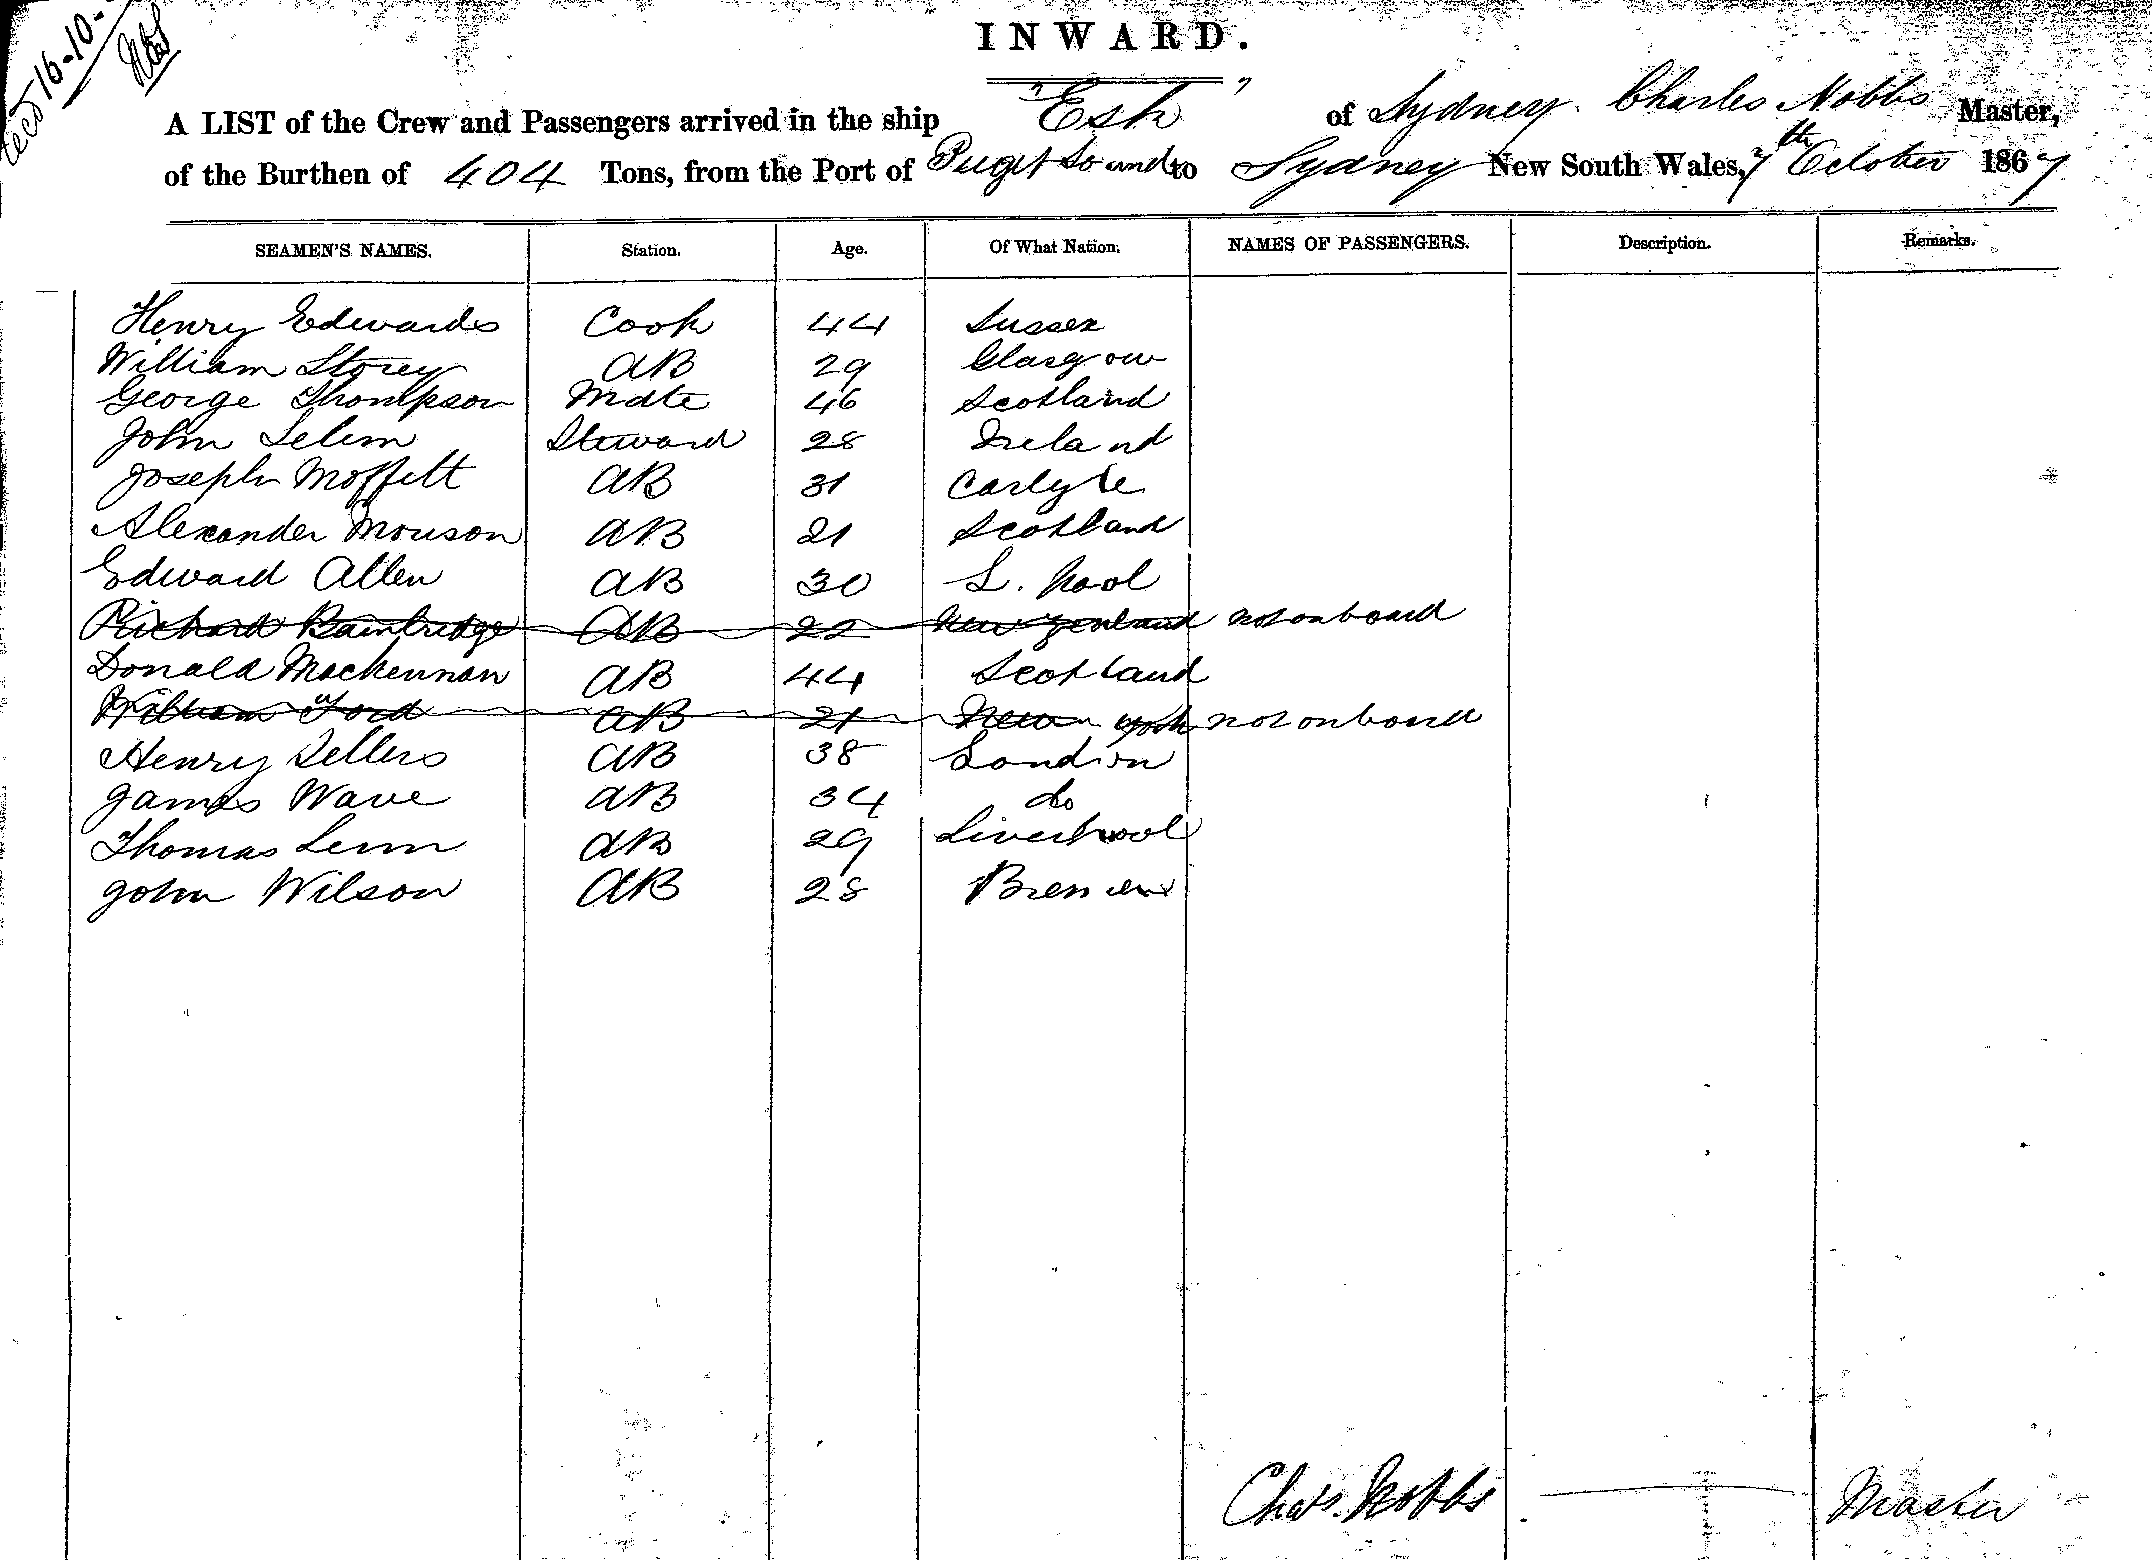 16-10-
INWARD.
A LIST of the Crew and Passengers arrived in the ship "Esk" of Sydney. Charles Nobbs Master,
of the Burthen of 404 Tons, from the Port of Puget Sound to Sydney New South Wales, 7th October 1867
SEAMEN'S NAMES. Station. Age. Of What Nation. NAMES OF PASSENGERS. Description. Remarks.
Henry Edwards Cook 44 Sussex
William Storey AB 29 Glasgow
George Thompson Mate 46 Scotland
John Selim Steward 28 Ireland
Joseph Moffett AB 31 Carlyle
Alexander Mouson AB 21 Scotland
Edward Allen AB 30 L. Pool
Richard Bainbridge AB 22 New Zealand not on board
Donald Mackennan AB 44 Scotland
William Ford AB 21 New York not on board
Henry Sellers AB 38 London
James Wave AB 34 do
Thomas Lenn AB 29 Liverpool
John Wilson AB 28 Bremen
Chas. Nobbs Master